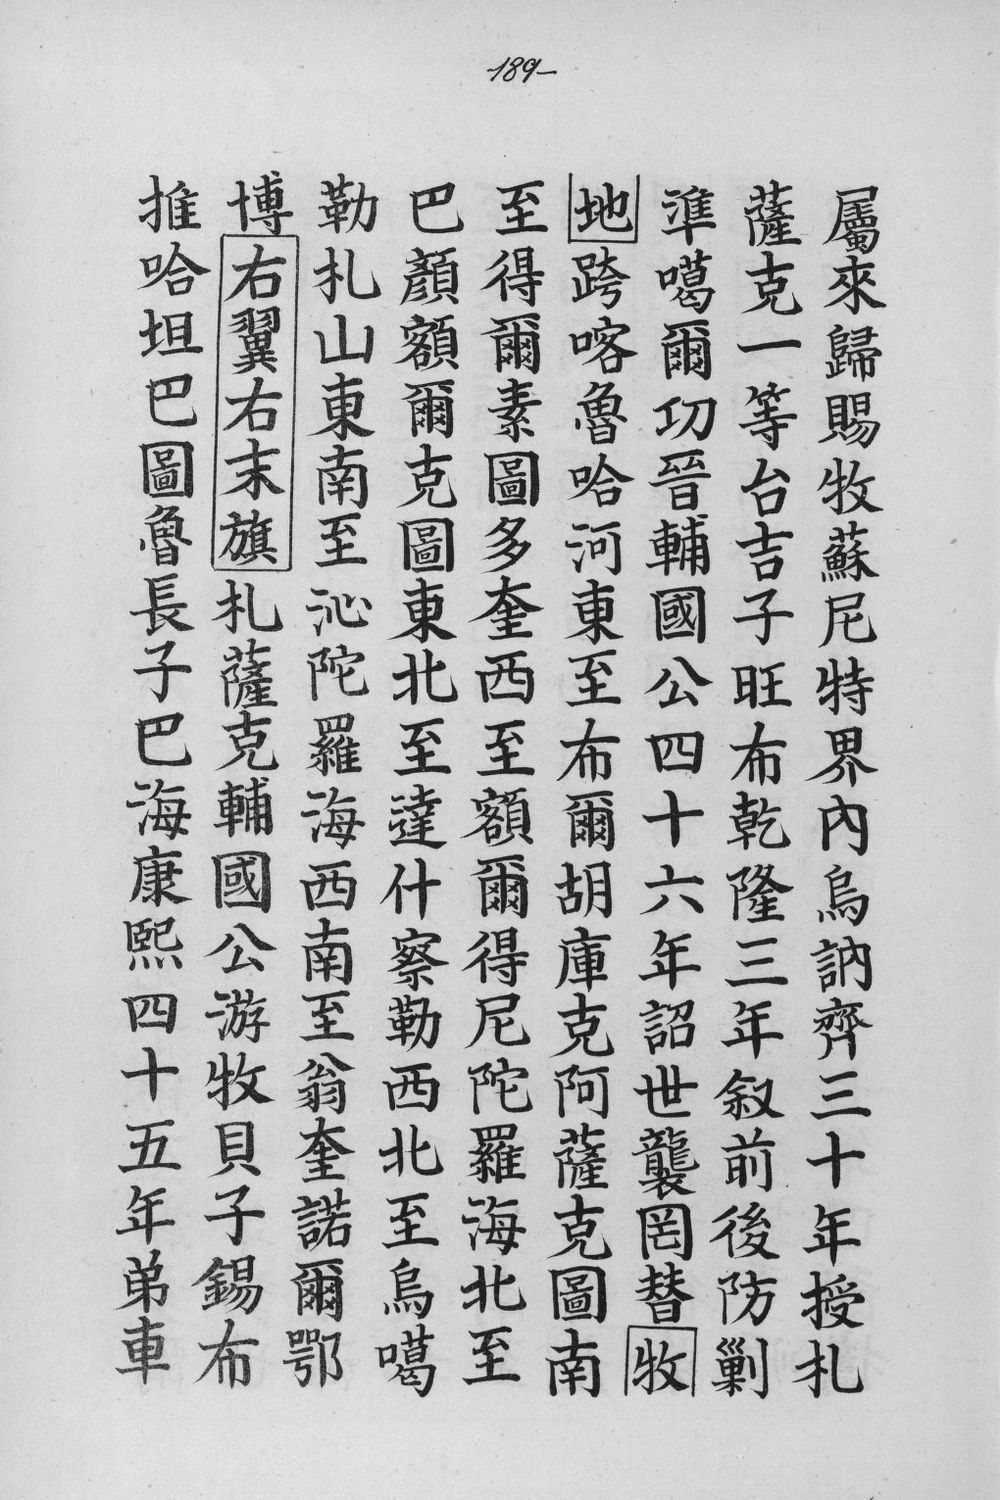 -189-
屬來歸賜牧蘇尼特界內烏訥齊三十年授札
薩克一等台吉子旺布乾隆三年叙前後防剿
準噶爾功晉輔國公四十六年詔世襲罔替牧
地跨喀魯哈河東至布爾胡庫克阿薩克圖南
至得爾素圖多奎西至額爾得尼陀羅海北至
巴顏額爾克圖東北至達什察勒西北至烏噶
勒札山東南至沁陀羅海西南至翁奎諾爾鄂
博右翼右末旗札薩克輔國公游牧貝子錫布
推哈坦巴圖魯長子巴海康熙四十五年弟車